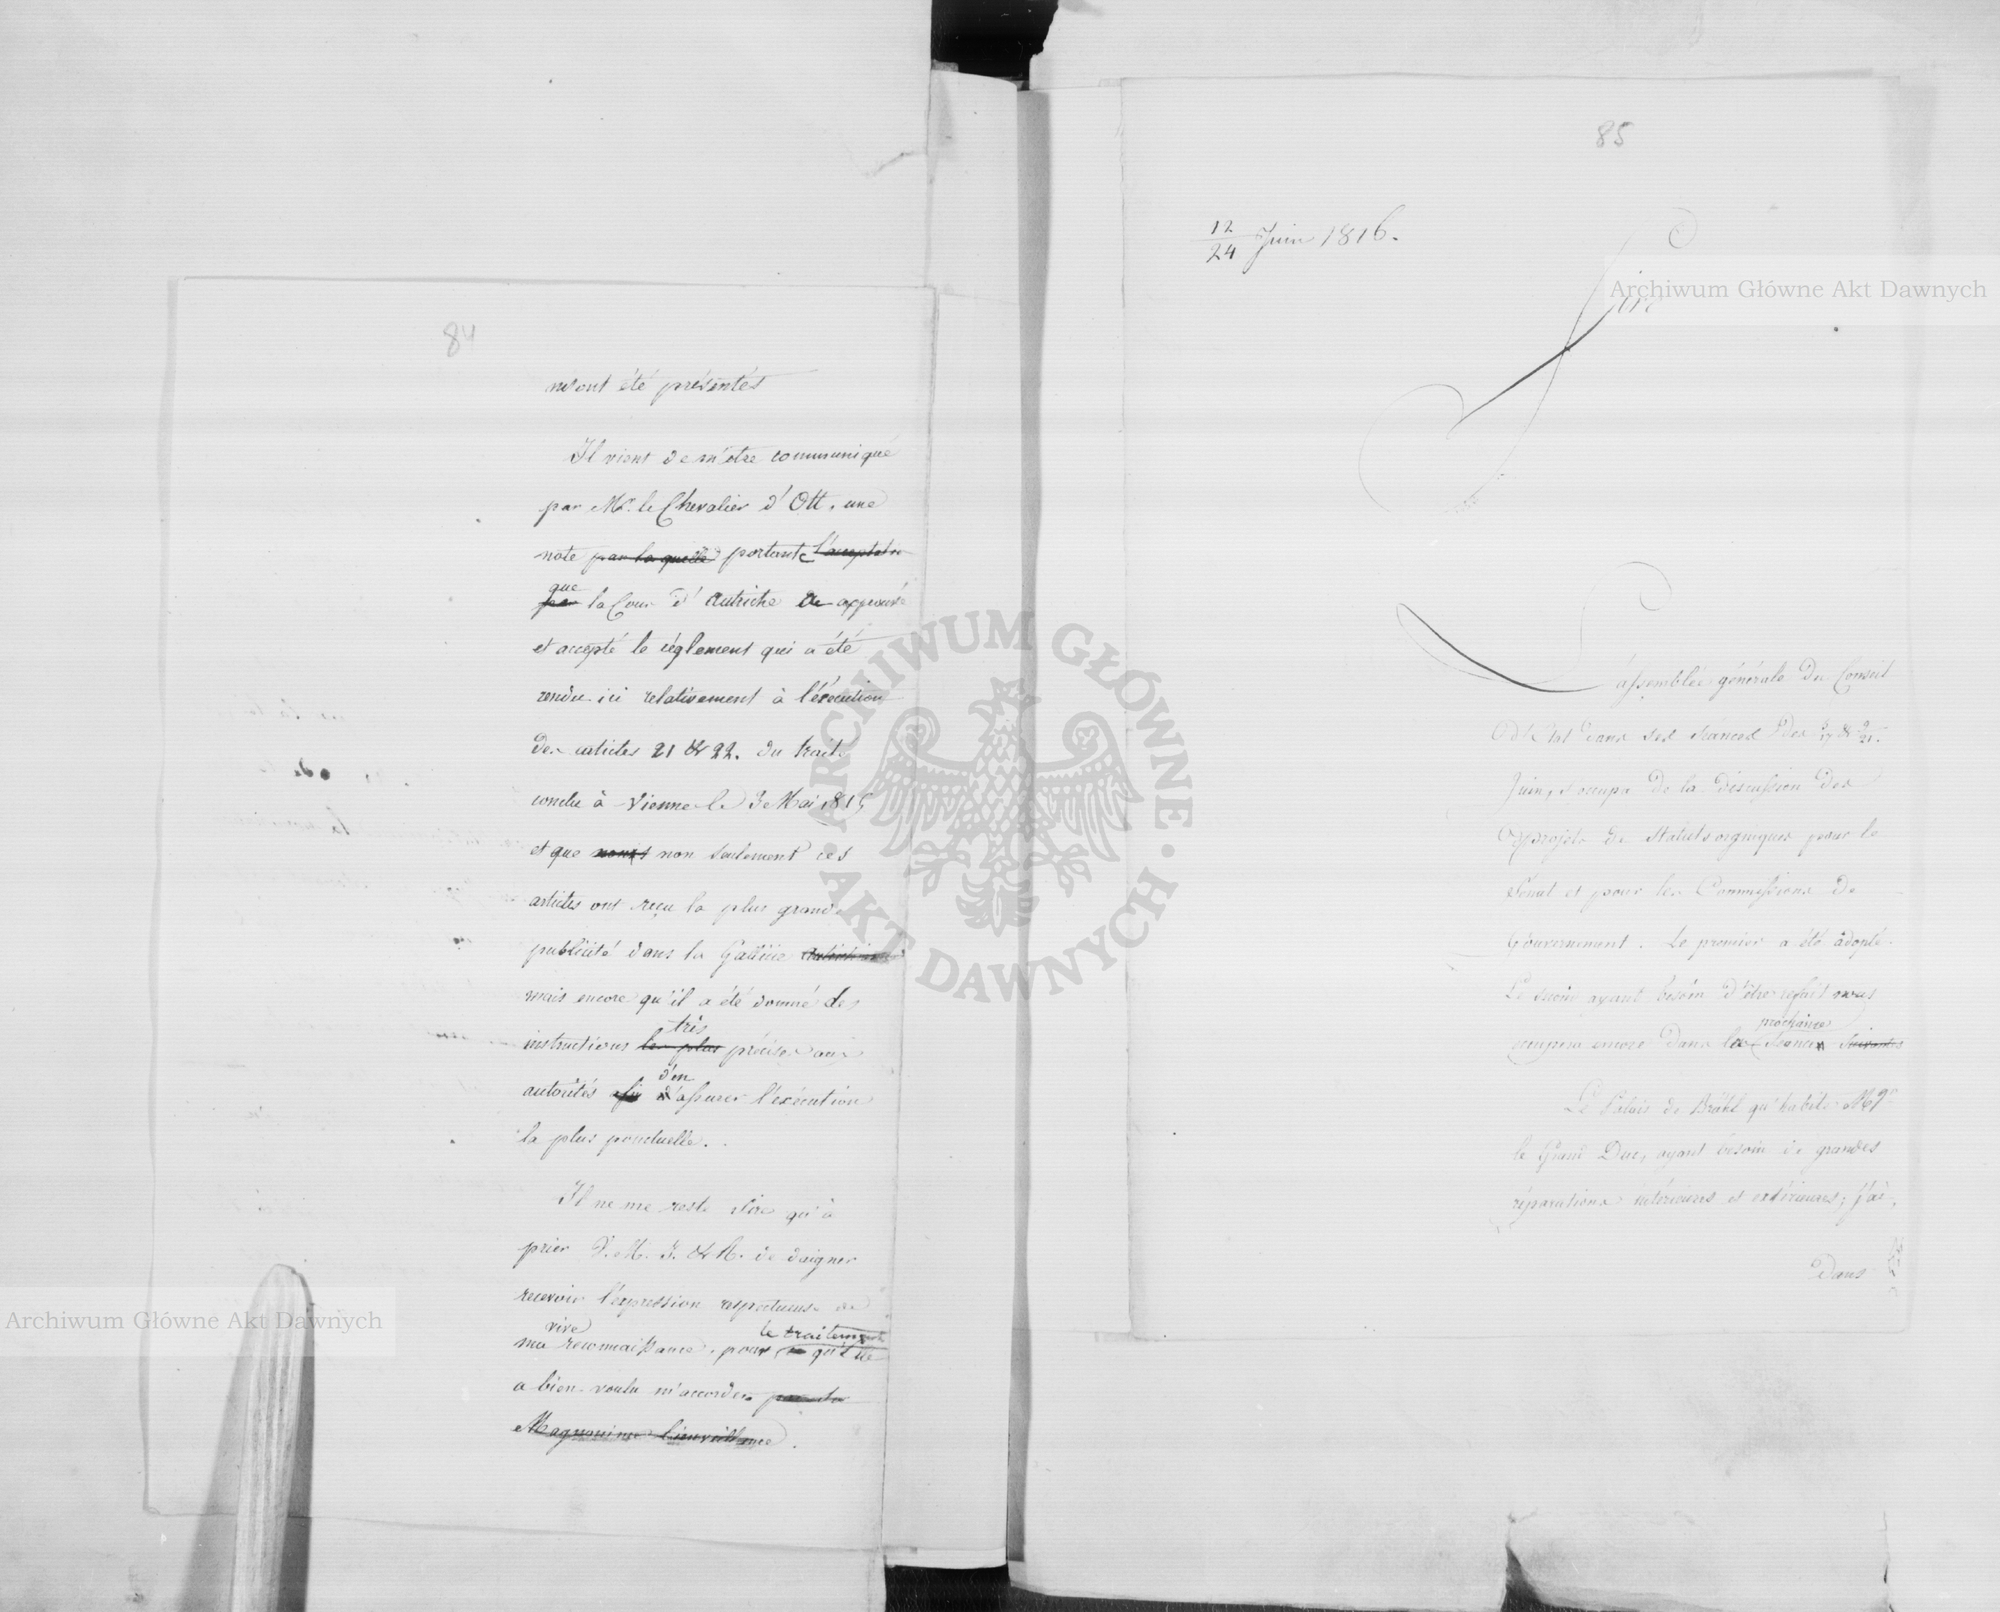 84
m'ont été présentés
Il vient de m'être communiqué
par Mr. le Chevalier d'Ott, une
note par la quelle portante l'acceptation
que
par la Cour d'Autriche a approuvé
et accepté le réglement qui a été
rendu ici relativement à l'éxécution
des articles 21 & 22. du traité
conclu à Vienne le 3 Mai 1815
et que non seulement ces
articles ont reçu la plus grande
publicité dans la Gallicie
mais encore qu'il a été donné des
très
instructions les plus précises aux
d'en
autorités afin d'assurer l'exécution
la plus ponctuelle.
Il ne me reste Sire qu'à
prier V. M. I. & R. de daigner
recevoir l'expression respectueuse de
vive le traitement
ma reconnaissance, pour qu'elle
a bien voulu m'accorder par sa
Magnanime bienveillance.
85
12/24 Juin 1816.
Sire
L'assemblée générale du Conseil
d'Etat dans ses séances des 5/17 & 9/21.
Juin, s'occupa de la discussion des
projets de Statuts organiques pour le
Sénat et pour les Commissions de
Gouvernement. Le premier a été adopté.
Le second ayant besoin d'être refait nous
prochaine
occupera encore dans la Séance suivantes
Le Palais de Brühl qu'habite Mgr
le Grand Duc, ayant besoin de grandes
réparations intérieures et extérieures; j'ai
dans
Archiwum Główne Akt Dawnych
Archiwum Główne Akt Dawnych
ARCHIWUM GŁÓWNE AKT DAWNYCH